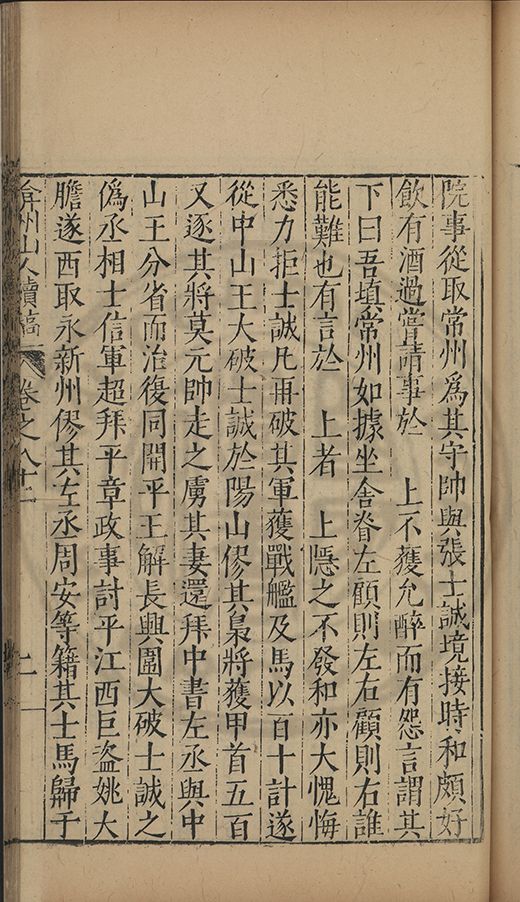 院事從取常州爲其守帥與張士誠境接時和頗好
飲有酒過嘗請事於　上不獲允醉而有怨言謂其
下曰吾塡常州如據坐舎脊左顧則左右顧則右誰
能難也有言於　上者　上隱之不發和亦大愧悔
悉力拒士誠凡再破其軍獲戰艦及馬以百十計遂
從中山王大破士誠於陽山僇其梟將獲甲首五百
又逐其將莫元帥走之虜其妻還拜中書左丞與中
山王分省而治復同開平王解長興圍大破士誠之
僞丞相士信軍超拜平章政事討平江西巨盗姚大
膽遂西取永新州僇其左丞周安等籍其士馬歸于
弇州山人續稿　卷之八十二　二